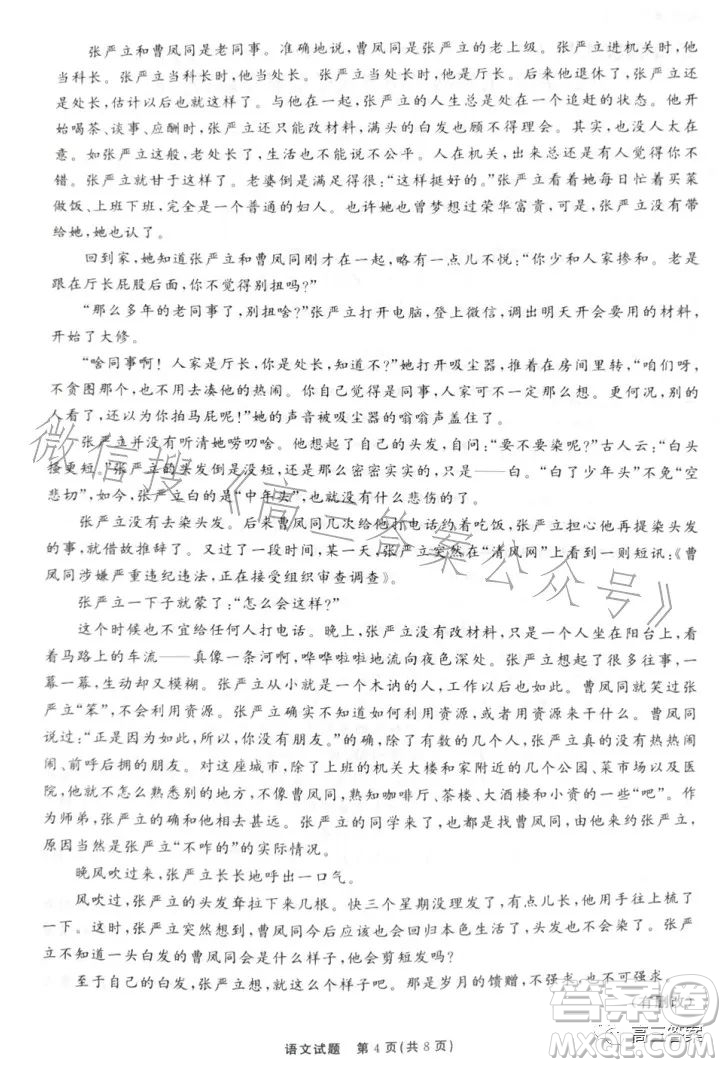 张严立和曹凤同是老同事。准确地说，曹凤同是张严立的老上级。张严立进机关时，他
当科长。张严立当科长时，他当处长。张严立当处长时，他是厅长。后来他退休了，张严立还
是处长，估计以后也就这样了。与他在一起，张严立的人生总是处在一个追赶的状态。他开
始喝茶、谈事、应酬时，张严立还只能改材料，满头的白发也顾不得理会。其实，也没人太在
意。如张严立这般，老处长了，生活也不能说不公平。人在机关，出来总还是有人觉得你不
错。张严立就甘于这样了。老婆倒是满足得很：“这样挺好的。”张严立看着她每日忙着买菜
做饭、上班下班，完全是一个普通的妇人。也许她也曾梦想过荣华富贵，可是张严立没有带
给她，她也认了。
回到家，她知道张严立和曹凤同刚才在一起喝茶，略有一点儿不悦：“你少和人家掺和。老是
跟在厅长屁股后面，你不觉得别扭吗？”
“那么多年的老同事了，别扭啥？”张严立打开电脑，登上微信，调出明天开会要用的材料，
开始了大修。
“啥同事啊！人家是厅长，你是处长，知道不？”她打开吸尘器，推着在房间里转，“咱们呀，
不贪图那个，也不用去凑他的热闹。你自己觉得是同事，人家可不一定是那么想的。外面的
人看了，还以为你拍马屁呢！”她的声音被吸尘器的嗡嗡声盖住了。
张严立并没有听清她唠叨啥。他想到了自己的头发，自问：“要不要染呢？”古人云：“白头
搔更短。”张严立的头发倒是没短，还是那么密密实实的，只是——白。“白了少年头”不免“空
悲切”，如今，张严立白的是“中年头”，也就没有什么悲伤的了。
张严立没有去染头发。后来曹凤同几次给他打电话约着吃饭，张严立担心他再提染头发
的事，就借故推辞了。又过了一段时间，某一天，张严立突然在“清风网”上看到一则短讯：《曹
凤同涉嫌严重违纪违法，正在接受组织审查调查》。
张严立一下子就蒙了：“怎么会这样？”
这个时候也不宜给任何人打电话。晚上，张严立没有改材料，只是一个人坐在阳台上，看
着马路上的车流——真像一条河啊，哗哗啦啦地流向夜色深处。张严立想了很多往事，一
幕一幕，生动却又模糊。张严立从小就是一个木讷的人，工作以后更是如此。曹凤同就笑过张
严立“笨”，不会利用资源。张严立确实不知道如何利用资源，或者用资源来干什么。曹凤同
说过：“正是因为如此，所以，你没有朋友。”的确，除了有数的几个人，张严立真的没有热热闹
闹、前呼后拥的朋友。对这座城市，除了上班的机关大楼和家附近的几个公园、菜市场以及医
院，他就没怎么太熟悉别的地方，不像曹凤同，熟知咖啡厅、茶楼、大酒店和小资的一些“吧”。作
为师弟，张严立的确和他相去甚远。张严立的同学来了，也只能找曹凤同，由他来约张严立，
原因当然是张严立“不咋的”的实际情况。
晚风吹过来，张严立长长地呼出一口气。
风吹过，张严立的头发耷拉下来几根。快三个星期没理发了，有点儿长，他用手往上梳了
一下。这时，张严立突然想到，曹凤同今后应该也会回归本色生活了，头发也不会染了。张严
立不知道一头白发的曹凤同会是什么样子，他会剪短发吗？
至于自己的白发，张严立想，就这么个样子吧。那是岁月的馈赠，不强求，也不可强求。
（有删改）
语文试题 第 4 页（共 8 页）
微信搜《高三答案公众号》
答案圈
高三答案
MXQE.COM